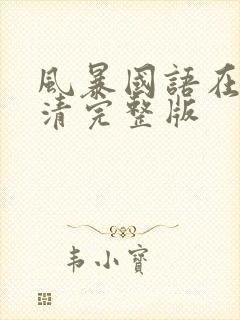 風暴國語在
清完整版
韦小寶